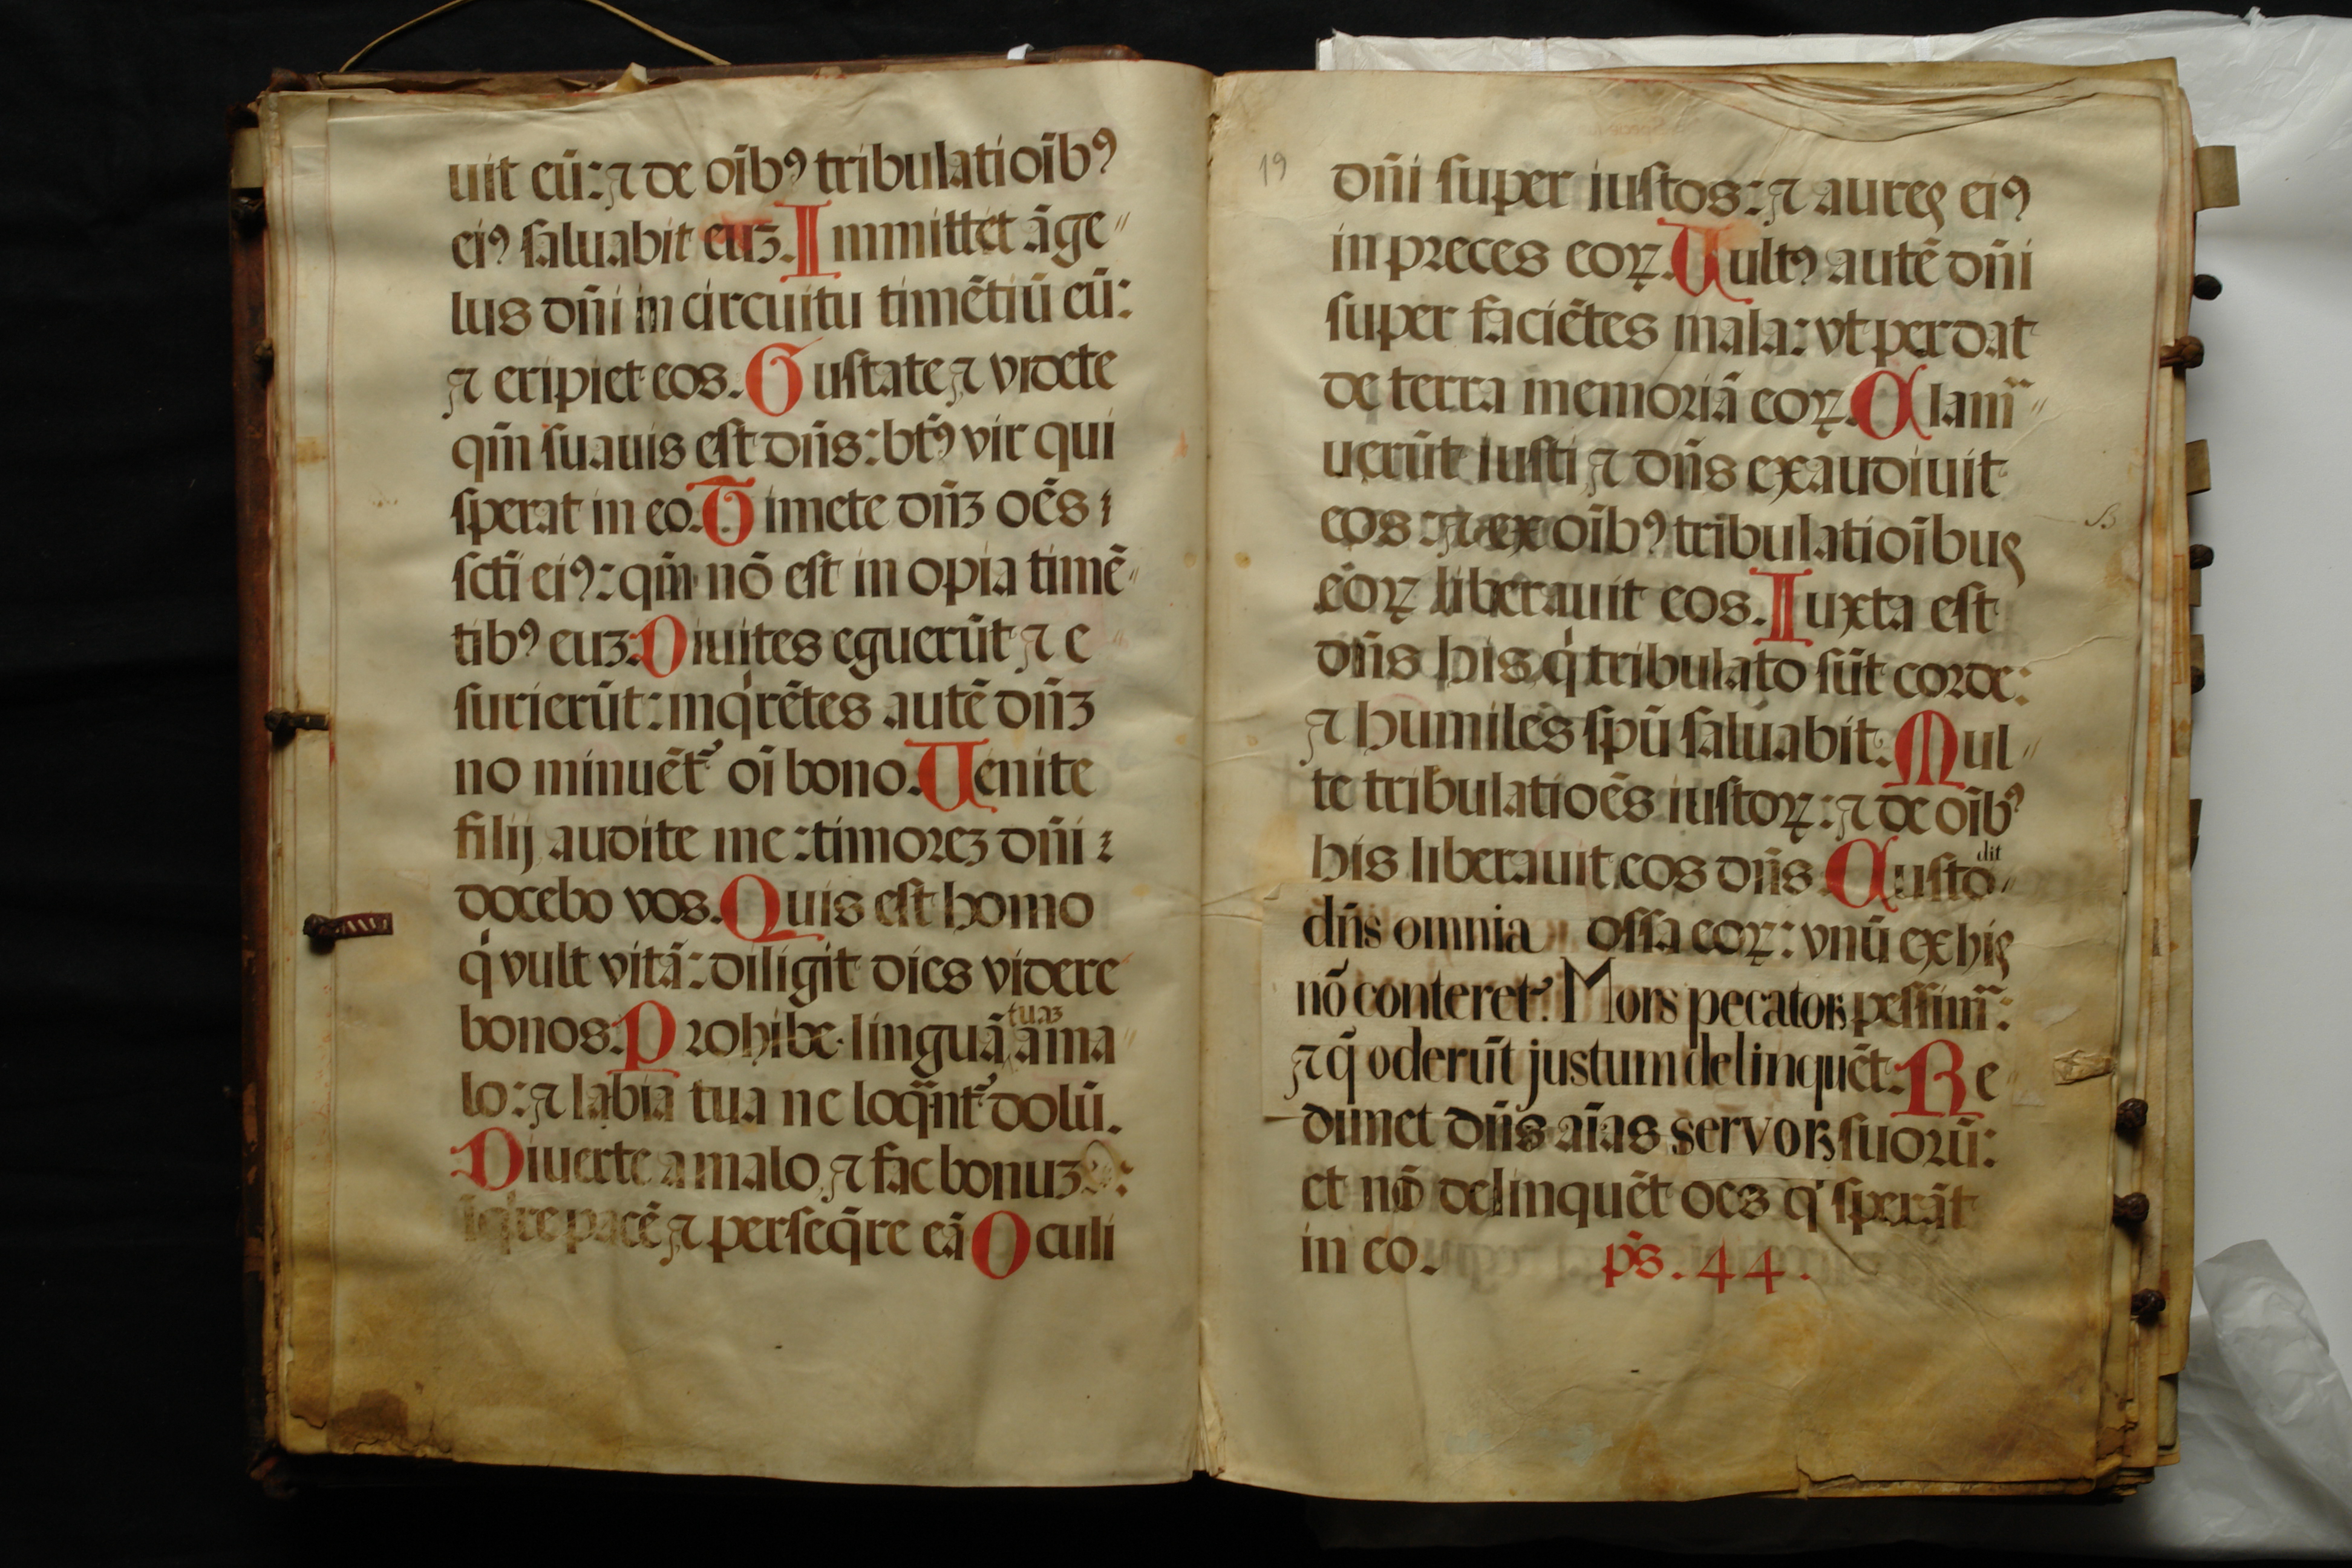 uit eū: ⁊ de oīb⁹ tribulatioīb⁹
ei⁹ saluabit euʒ. Immittet āge〃
lus dn̄i in circuitu timētiū eū:
⁊ eripiet eos. Gustate ⁊ videte
qm̄ suauis est dn̄s: bt̄⁹ vir qui
sperat in eo. Timete dn̄ʒ oēs
sct̄i ei⁹: qm̄ nō est in opia timē〃
tib⁹ euʒ. Diuites eguerūt ⁊ e
surierūt: inqͥrētes autē dn̄ʒ
no minuēt᷑ oī bono. Uenite
filij audite me: timoreʒ dn̄i
docebo vos. Quis est homo
qͥ vult vitā: diligit dies videre
bonos. Prohibe linguā tuaʒ a ma
lo: ⁊ labia tua ne loq̄nt᷑ dolū.
Diuerte a malo ⁊ fac bonuʒ:
īqͥre pacē ⁊ perseq̄re eā Oculi
19
dn̄i super iustos: ⁊ aures ei⁹
in preces eoꝝ. Uult⁹ autē dn̄i
super faciētes mala: vt perdat
de terra memoriā eoꝝ. Clam̄〃
uerūt iusti ⁊ dn̄s exaudiuit
eos: ⁊ ex oīb⁹ tribulatioībus
eoꝝ liberauit eos. Iuxta est
dn̄s his qͥ tribulato sūt corde:
⁊ humiles spū saluabit. Mul〃
te tribulatioēs iustoꝝ: ⁊ de oīb⁹
his liberauit eos dn̄s Custodit
dn̄s omnia ossa eoꝝ: vnū ex his
nō conteret᷑. Mors pecatoꝝ pessim̄:
⁊ q̄ oderūt justum delinquēt. Re
dimet dn̄s aīas servoꝝ suorū:
et nō delinquēt oēs qͥ sperāt
in eo. ps̄. 44.